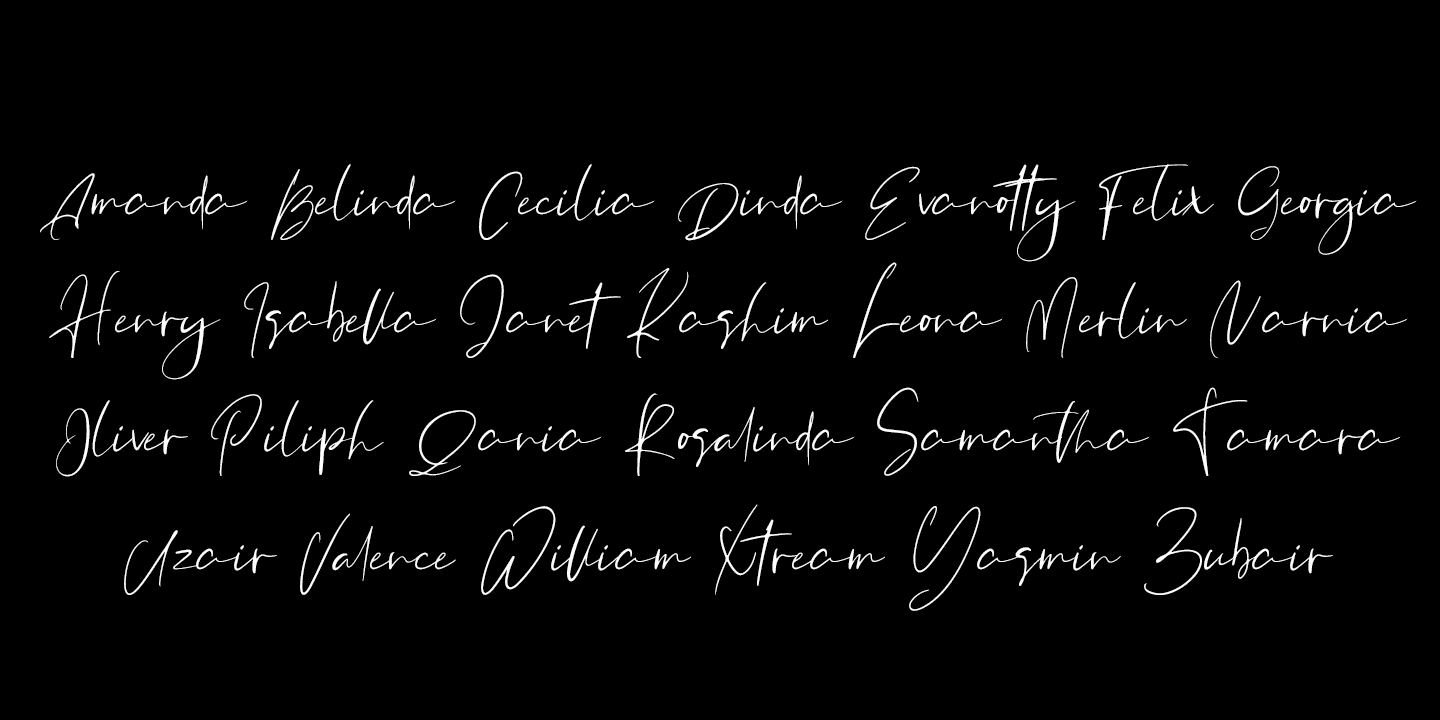 Amanda Belinda Cecilia Dinda Evanotty Felix Georgia
Henry Isabella Janet Kashim Leona Merlin Narnia
Oliver Piliph Qania Rosalinda Samantha Tamara
Uzair Valence William Xtream Yasmin Zubair